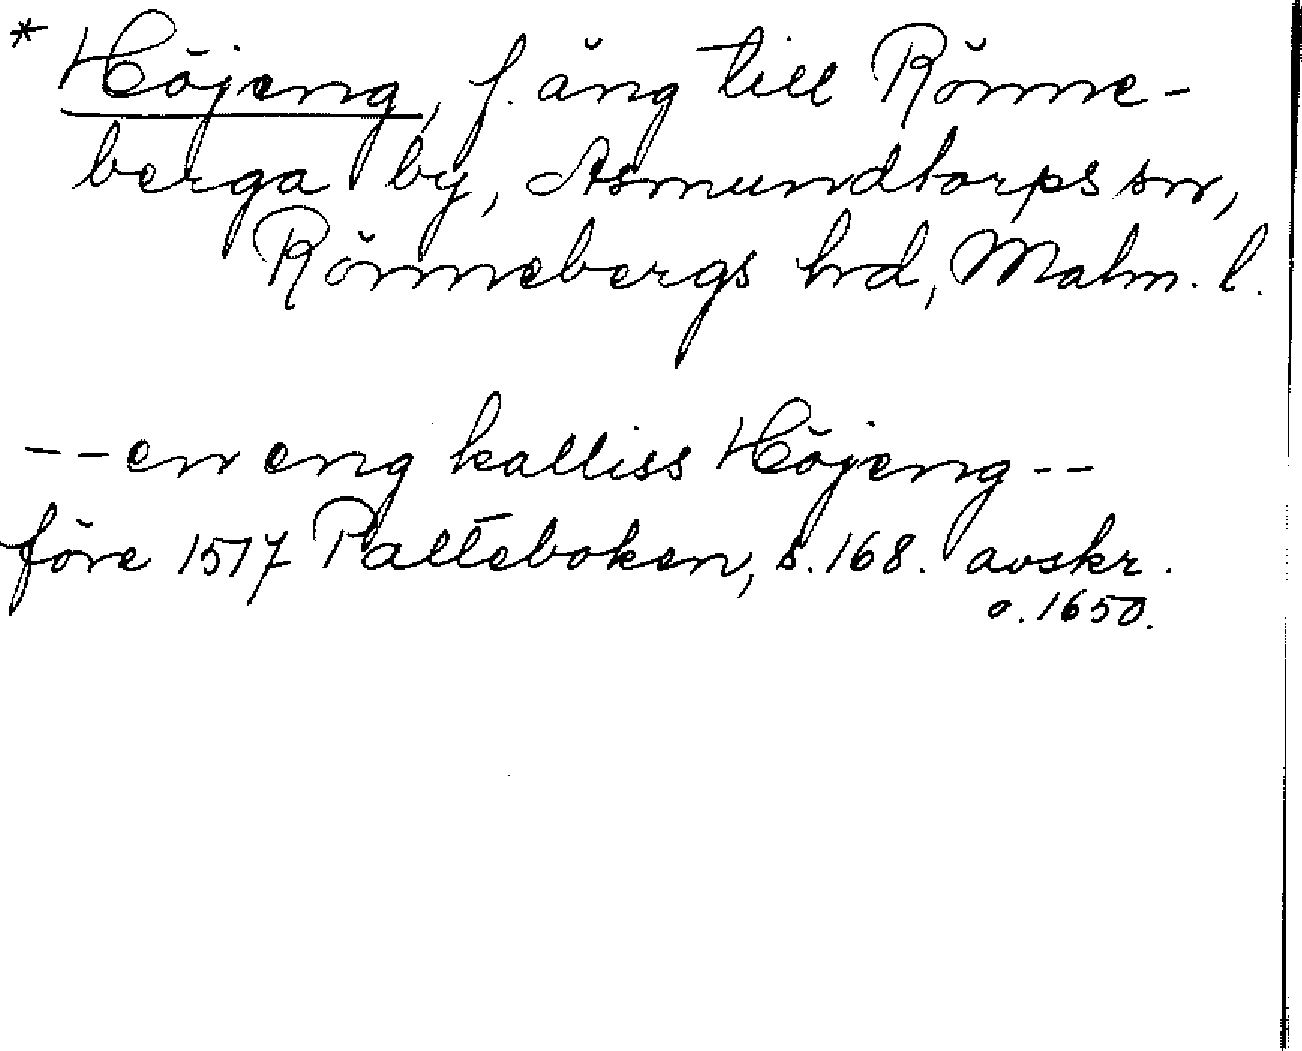 * Höjeng, f. äng till Rönne-
berga by, Asmundtorps sn,
Rönnebergs hd, Malm. l.
-- en eng kalliss Höjeng --
före 1517 Palteboken, s. 168. avskr.
o. 1650.